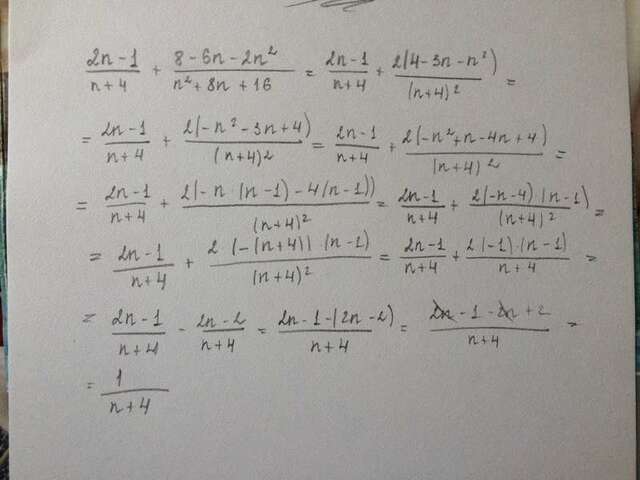 (2n-1)/(n+4) + (8-6n-2n²)/(n²+8n+16) = (2n-1)/(n+4) + 2(4-3n-n²)/(n+4)² =
= (2n-1)/(n+4) + 2(-n²-3n+4)/(n+4)² = (2n-1)/(n+4) + 2(-n²+n-4n+4)/(n+4)² =
= (2n-1)/(n+4) + 2(-n(n-1)-4(n-1))/(n+4)² = (2n-1)/(n+4) + 2(-n-4)(n-1)/(n+4)² =
= (2n-1)/(n+4) + 2(-(n+4))(n-1)/(n+4)² = (2n-1)/(n+4) + 2(-1)(n-1)/(n+4) =
= (2n-1)/(n+4) - (2n-2)/(n+4) = (2n-1-(2n-2))/(n+4) = (2n-1-2n+2)/(n+4) =
= 1/(n+4)